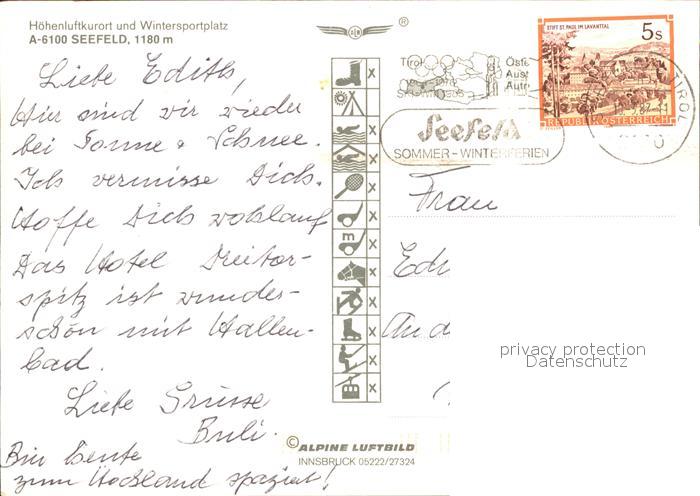 Höhenluftkurort und Wintersportplatz
A-6100 SEEFELD, 1180 m
Liebe Edith,
Hier sind wir wieder
bei Sonne + Schnee.
Ich vermisse Dich.
Hoffe Dich wohlauf
Das Hotel Dreitor-
spitz ist wunder-
schön mit Hallen-
bad.
Liebe Grüsse
Buli.
Bin heute
zum Hochland spaziert!
x
x
x
x
x
m x
x
x
x
x
x
© ALPINE LUFTBILD
INNSBRUCK 05222/27324
®
Tirol
Seefeld
SOMMER-WINTERFERIEN
STIFT ST. PAUL IM LAVANTTAL
5 S
REPUBLIK ÖSTERREICH
TIROL
Frau
privacy protection
Datenschutz